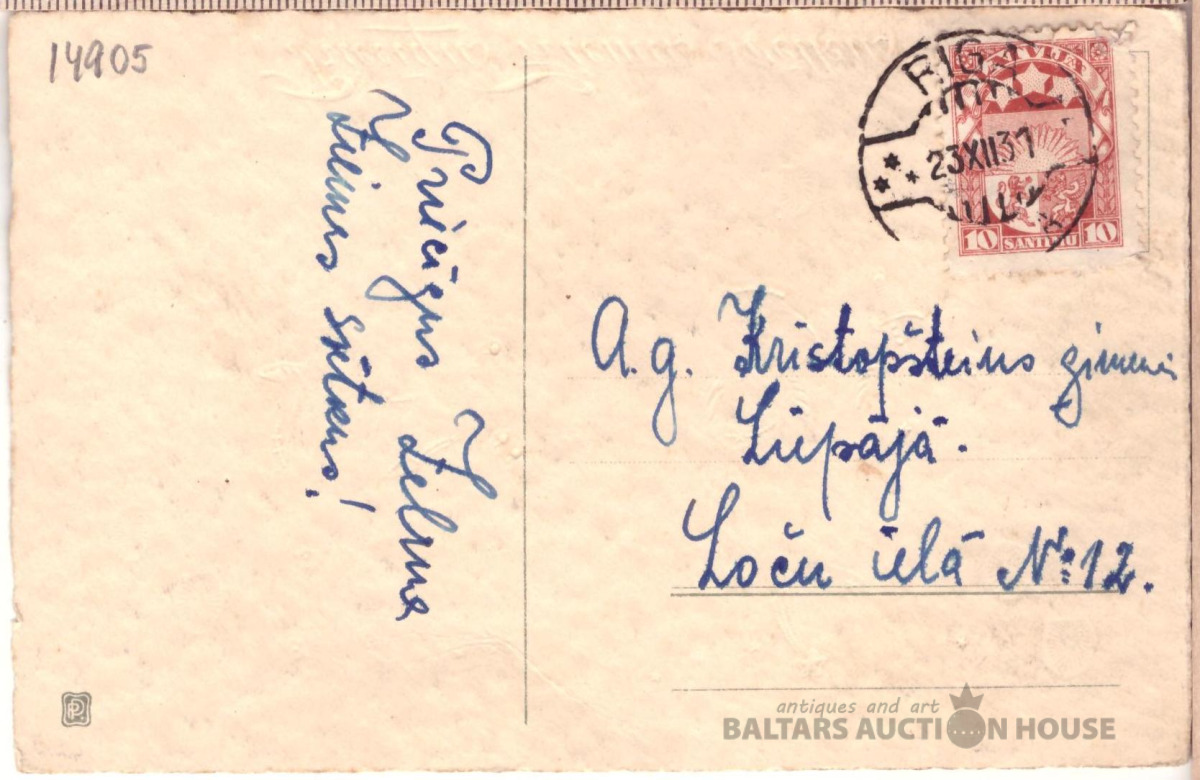 14905
Priecīgus
Ziemas svētkus!
Zelma
RIGA
23XII31
LATVIJA
10 SANTIMU 10
A.g. Kristopšteins ģimenei
Liepājā.
Loču ielā № 12.
antiques and art
BALTARS AUCTION HOUSE